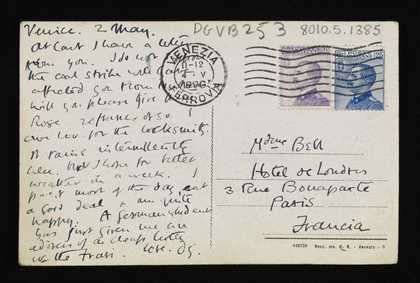 Venice. 2 May.
At last I have a letter
from you. I do not
the coal strike will
affected you
will you please give
Rose
our love for the
It rains intermittently
here. I hope for better
weather in a week. I
paint most of the day, eat
a good deal & am quite
happy. A German student
has just given me an
address of a cheap hotel
love. DG.
DGVB 253
8010.5.1385
VENEZIA
11-12
4. V
FERROVIA
Mdme Bell
Hotel de Londres
3 Rue Bonaparte
Paris
Francia